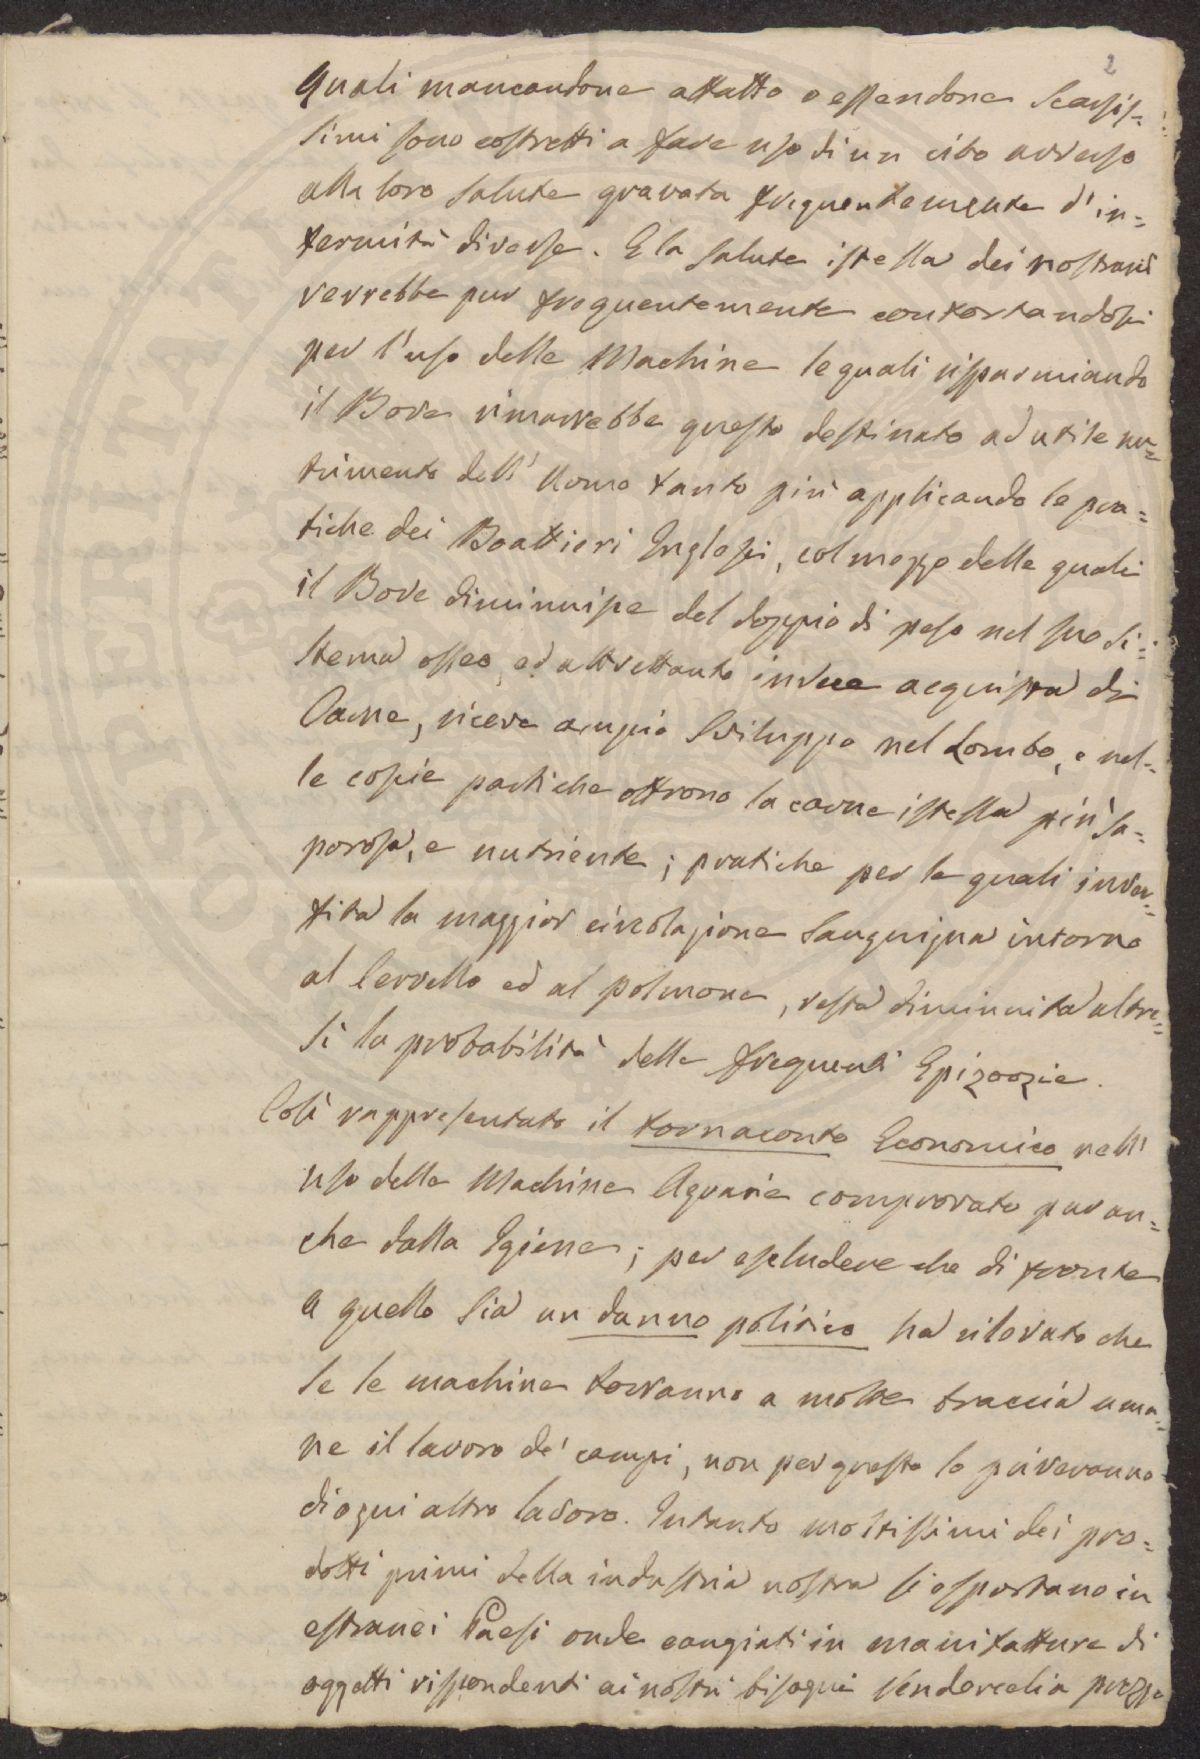 2
quali mancandone affatto o essendone scarsis=
simi sono costretti a fare uso di un cibo avverso
alla loro salute gravata frequentemente d'in=
fermità diverse. E la salute istessa dei nostrani
verrebbe pur frequentemente confortandosi
per l'uso delle Machine le quali risparmiando
il Bove rimarrebbe questo destinato ad utile nu=
trimento dell'Uomo tanto più applicando le pra=
tiche dei Boattieri Inglesi, col mezzo delle quali
il Bove diminuisce del doppio di peso nel suo si=
stema osseo, ed altrettanto invece acquista di
Carne, riceve ampio sviluppo nel Lombo, e nel=
le coscie parti che offrono la carne istessa più sa=
porosa, e nutriente; pratiche per le quali inver=
tita la maggior circolazione sanguigna intorno
al Cervello ed al polmone, resta diminuita altre=
sì la probabilità delle frequenti Epizoozie.
Così rappresentato il tornaconto Economico nell'
uso delle Machine Agrarie comprovato puran=
che dalla Igiene; per escludere che di fronte
a quello sia un danno politico ha rilevato che
se le machine torranno a molte braccia uma=
ne il lavoro de' campi, non per questo le priveranno
di ogni altro lavoro. Intanto moltissimi dei pro=
dotti primi della industria nostra si esportano in
estranei Paesi onde cangiati in manifatture di
oggetti rispondenti ai nostri bisogni vendercelia prezzo